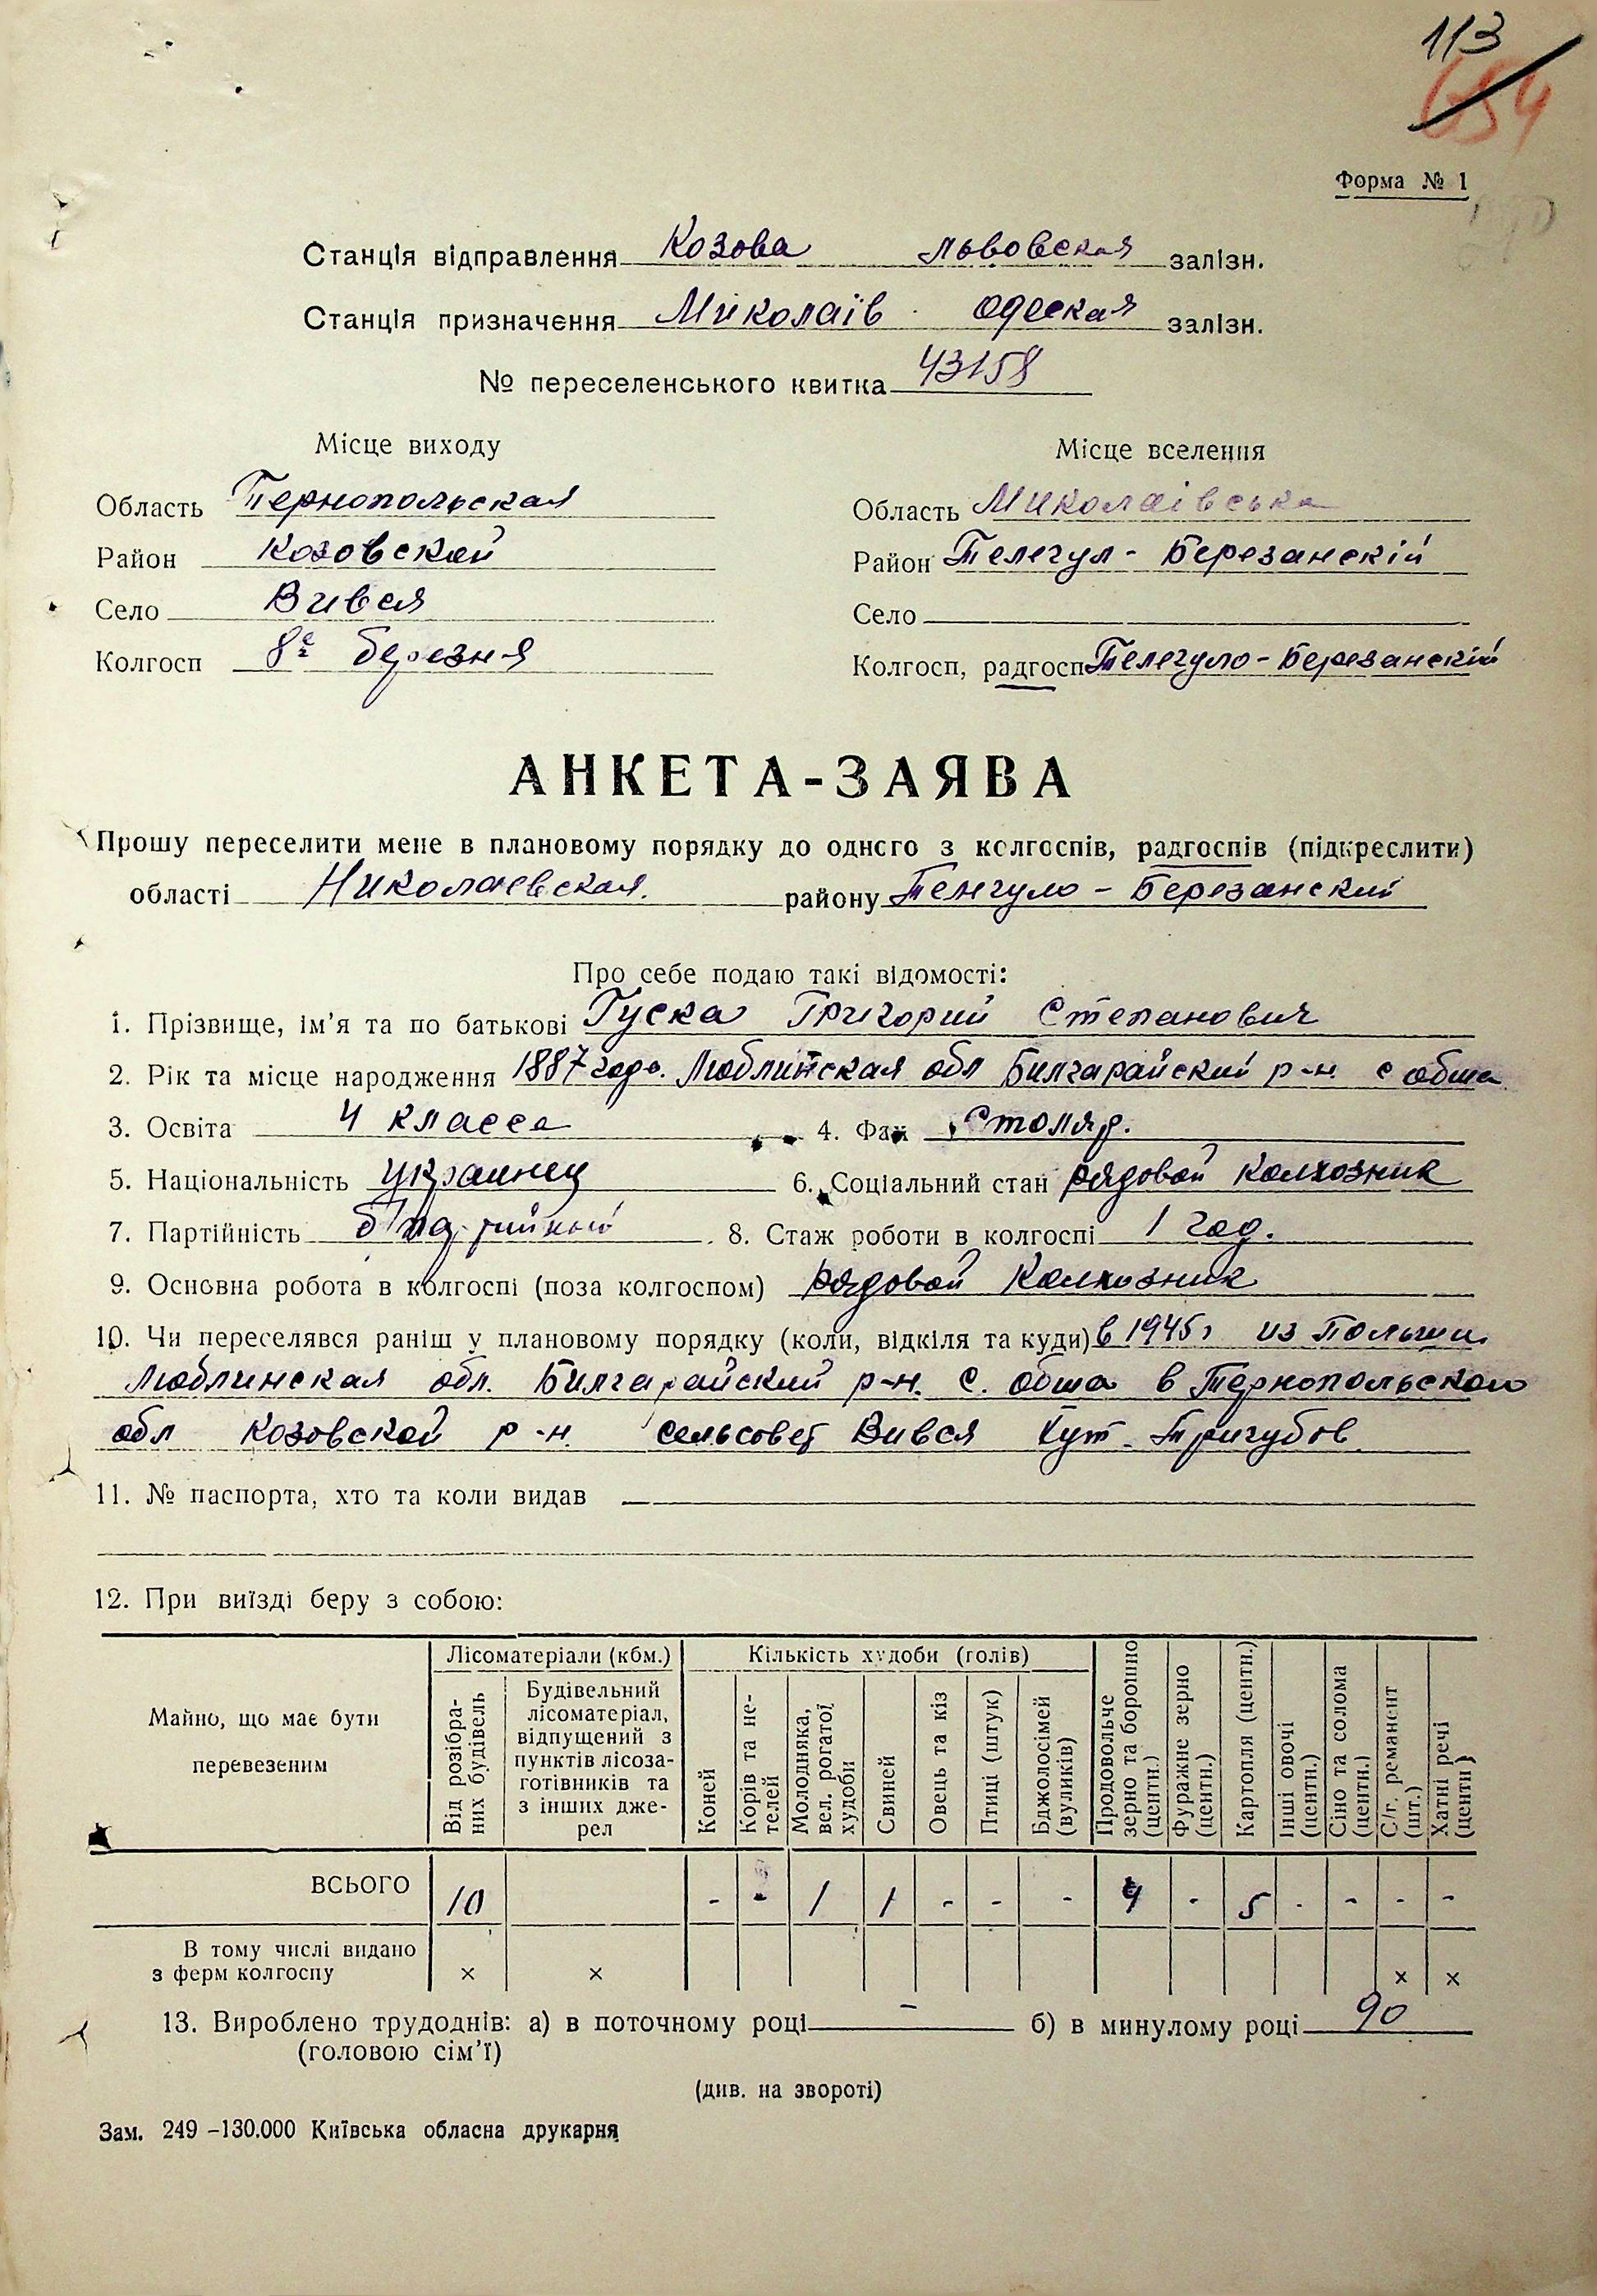 113
654
Форма № 1
Станція відправлення Козова Львовская залізн.
Станція призначення Миколаїв Одеская залізн.
№ переселенського квитка 43158
Місце виходу Місце вселення
Область Тернопольская Область Миколаівська
Район Козовской Район Телегул - Березанскій
Село Вився Село
Колгосп 8е березня Колгосп, радгосп Телегуло - Березанскій
АНКЕТА-ЗАЯВА
Прошу переселити мене в плановому порядку до одного з колгоспів, радгоспів (підкреслити)
області Николаевская. району Тенгуло - Березанский
Про себе подаю такі відомості:
1. Прізвище, ім’я та по батькові Гуска Григорий Степанович
2. Рік та місце народження 1887 года. Люблинская обл Билгарайский р-н. с обша
3. Освіта 4 класса 4. Фах Столяр.
5. Національність украинец 6. Соціальний стан рядовой колхозник
7. Партійність б/партийный 8. Стаж роботи в колгоспі 1 год.
9. Основна робота в колгоспі (поза колгоспом) рядовой колхозник
10. Чи переселявся раніш у плановому порядку (коли, відкіля та куди) в 1945г из Польши
Люблинская обл. Билгарайский р-н. с. обша в Тернопольскою
обл Козовской р-н сельсовет Вився Хут. Тригубов
11. № паспорта, хто та коли видав
12. При виїзді беру з собою:
Майно, що має бути перевезеним
Лісоматеріали (кбм.) Кількість худоби (голів)
Від розібраних будівель
Будівельний лісоматеріал, відпущений з пунктів лісозаготівників та з інших джерел
Коней
Корів та нетелей
Молодняка, вел. рогатої худоби
Свиней
Овець та кіз
Птиці (штук)
Бджолосімей (вуликів)
Продовольче зерно та борошно (центн.)
Фуражне зерно (центн.)
Картопля (центн.)
Інші овочі (центн.)
Сіно та солома (центн.)
С/г. реманент (шт.)
Хатні речі (центн)
ВСЬОГО 10 - - 1 1 - - - 4 - 5 - - - -
В тому числі видано
з ферм колгоспу × × × ×
13. Вироблено трудоднів: а) в поточному році – б) в минулому році 90
(головою сім’ї)
(див. на звороті)
Зам. 249 –130.000 Київська обласна друкарня